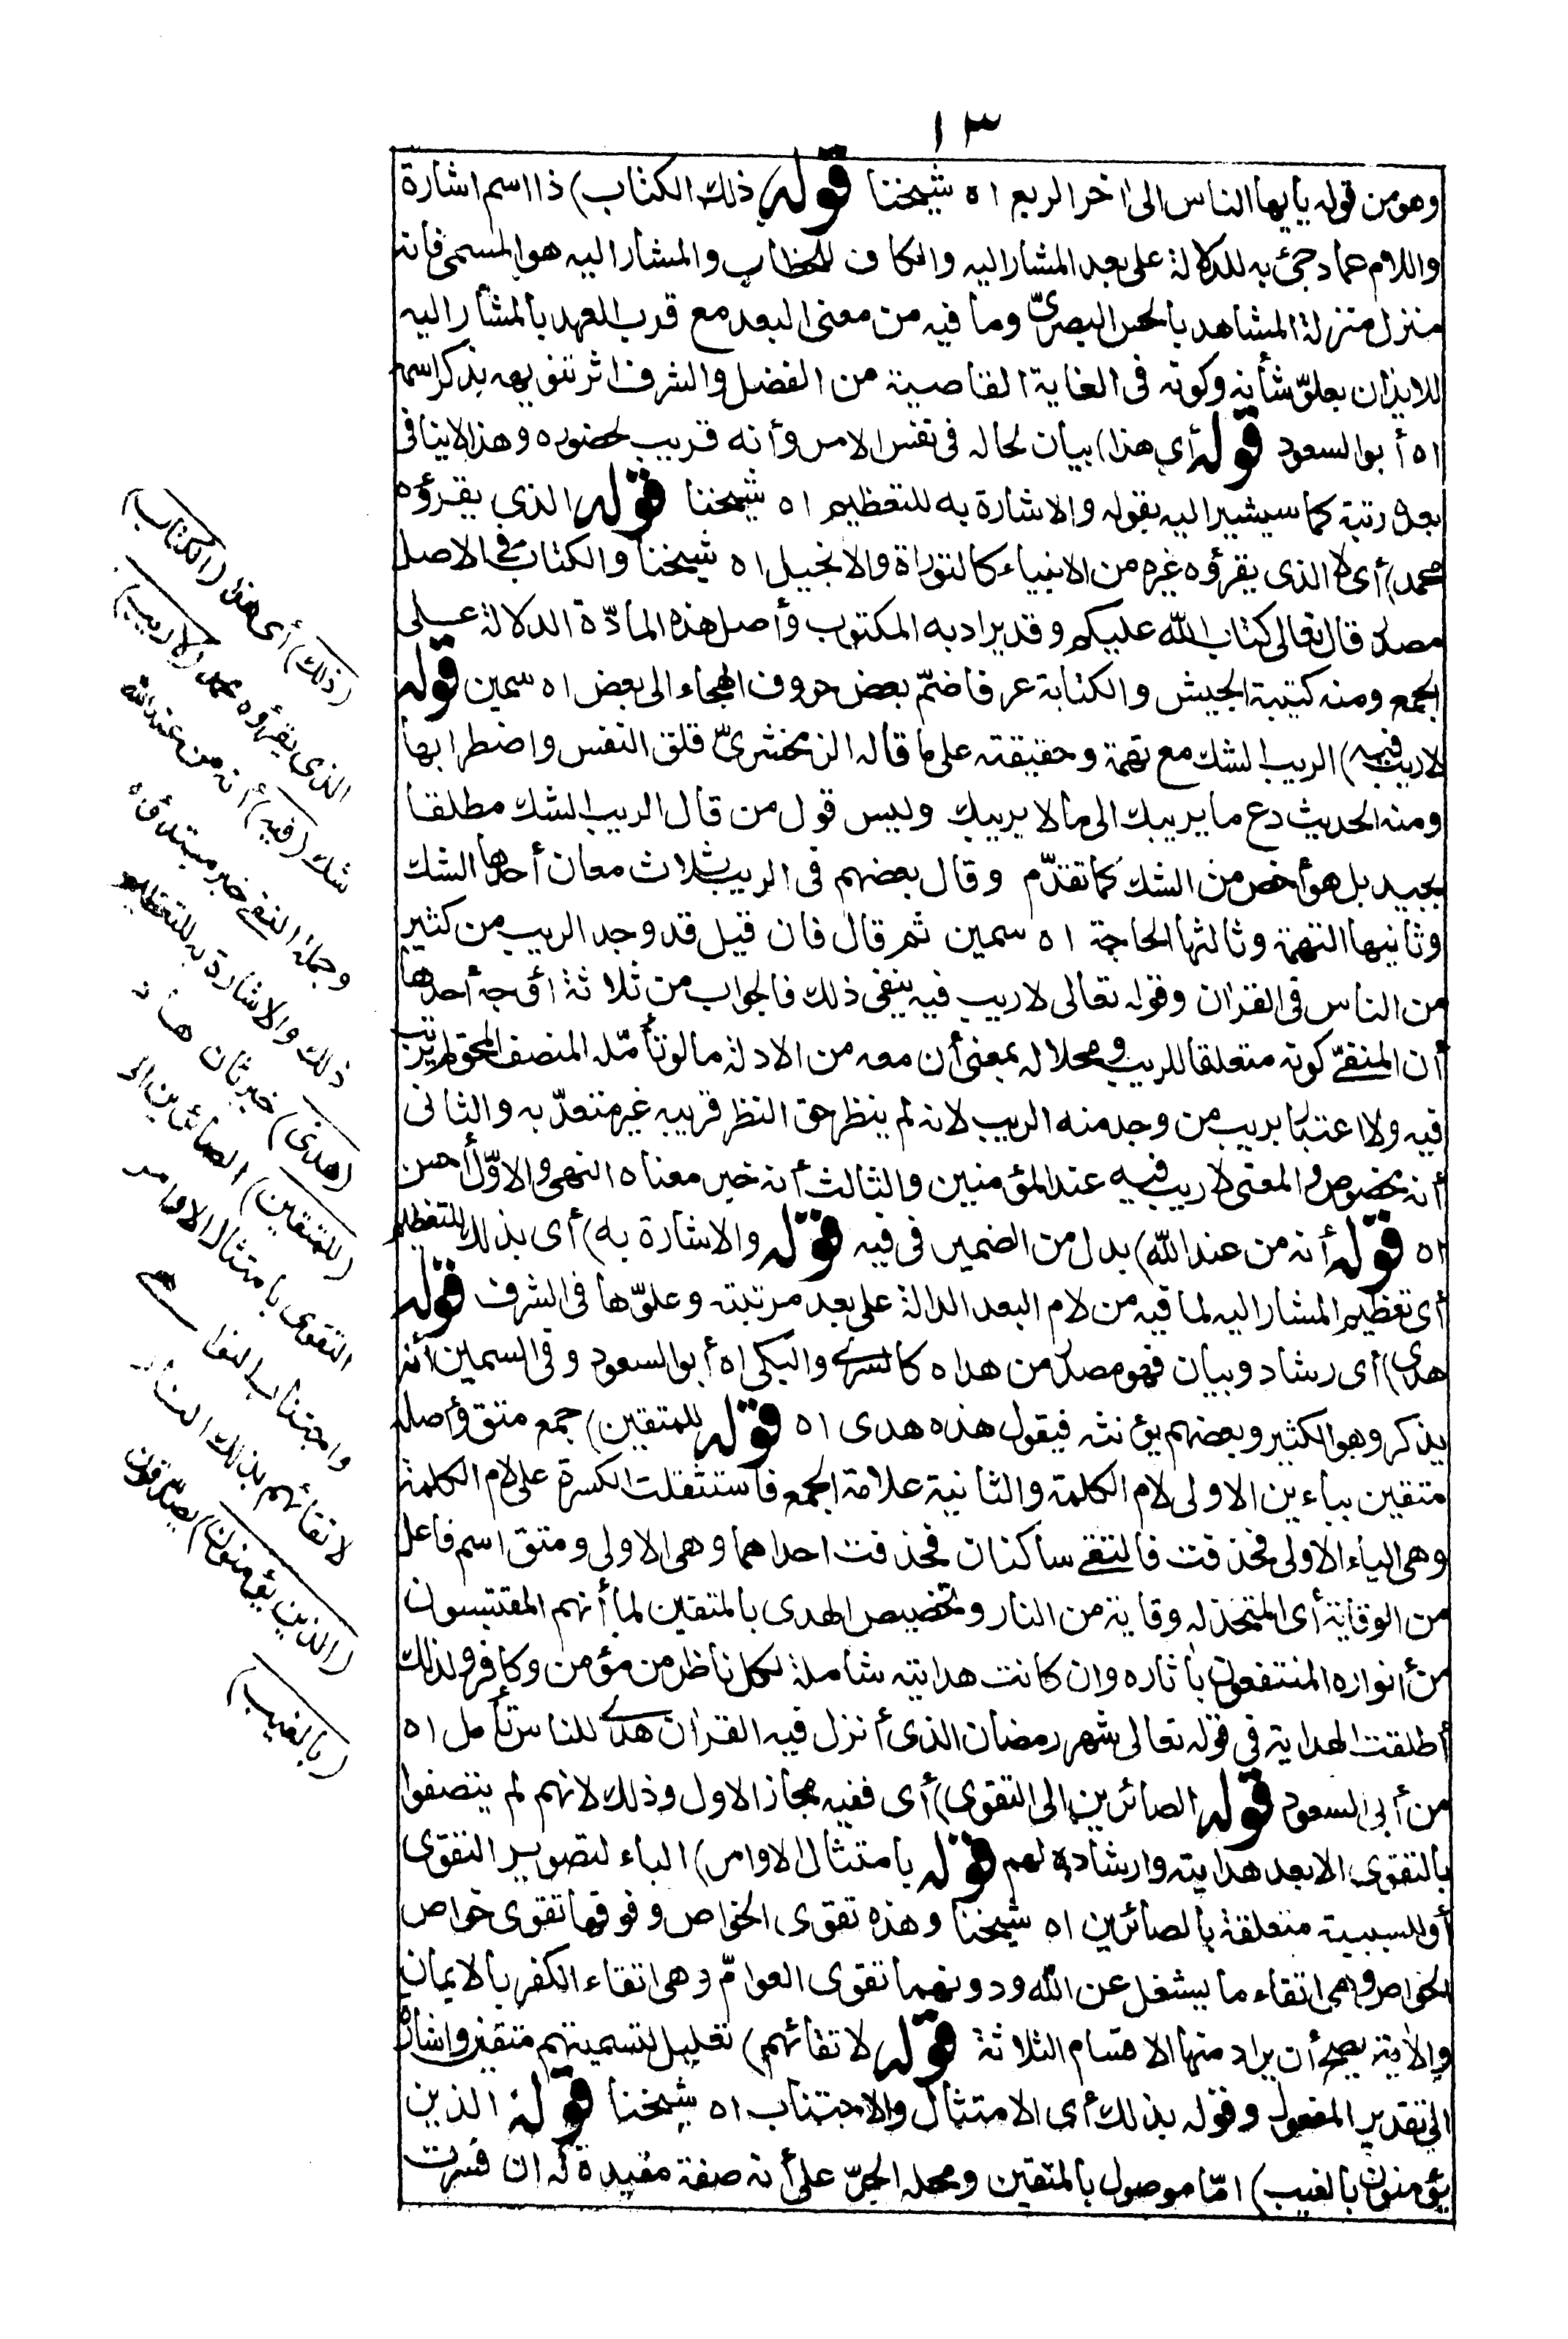 ١٣
وهو من قوله يأيها الناس الى اخر الربع اه شيخنا قوله ذلك الكتاب) ذا اسم اشارة
واللام عماد جئ به للدلالة على بعد المشار اليه والكاف للخطاب والمشار اليه هو المسمى فانه
منزل منزلة المشاهد بالحس البصرىّ وما فيه من معنى البعد مع قرب العهد بالمشار اليه
للايذان بعلوّ شأنه وكونه فى الغاية القاصية من الفضل والشرف اثر تنويهه بذكر اسمه
اه أبو السعود قوله أى هذا) بيان لحاله فى نفس الامر وأنه قريب لحضوره وهذا لاينافى
بعده رتبة كما سيشير اليه بقوله والاشارة به للتعظيم اه شيخنا قوله الذى يقرؤه
محمد) أى لا الذى يقرؤه غيره من الانبياء كالتوراة والانجيل اه شيخنا والكتاب فى الاصل
مصدر قال تعالى كتاب الله عليكم وقد يراد به المكتوب وأصل هذه المادّة الدلالة على
الجمع ومنه كتيبة الجيش والكتابة عرفا ضمّ بعض حروف الهجاء الى بعض اه سمين قوله
لاريب فيه) الريب الشك مع تهمة وحقيقته على ما قاله الزمخشرىّ قلق النفس واضطرابها
ومنه الحديث دع ما يريبك الى ما لا يريبك وليس قول من قال الريب الشك مطلقا
بجيد بل هو أخص من الشك كما تقدّم وقال بعضهم فى الريب ثلاث معان أحدها الشك
وثانيها التهمة وثالثها الحاجة اه سمين ثم قال فان قيل قد وجد الريب من كثير
من الناس فى القران وقوله تعالى لاريب فيه ينفى ذلك فالجواب من ثلاثة أوجه أحدها
أن المنفىّ كونه متعلقا للريب ومحلا له بمعنى أن معه من الادلة ما لو تأمّله المنصف المحق لم يرتب
فيه ولا اعتبار بريب من وجد منه الريب لانه لم ينظر حق النظر فريبه غير معتدّ به والثانى
أنه مخصوص والمعنى لاريب فيه عند المؤمنين والثالث أنه خبر معناه النهى والاوّل أحسن
اه قوله أنه من عند الله) بدل من الضمير فى فيه قوله والاشارة به) أى بذلك للتعظيم
أى تعظيم المشار اليه لما فيه من لام البعد الدالة على بعد مرتبته وعلوّها فى الشرف قوله
هدى) أى رشاد وبيان فهو مصدر من هداه كالسرى والبكى اه أبو السعود وفى السمين أنه
يذكر وهو الكثير وبعضهم يؤنثه فيقول هذه هدى اه قوله للمتقين) جمع متق وأصله
متقين بياءين الاولى لام الكلمة والثانية علامة الجمع فاستثقلت الكسرة على لام الكلمة
وهى الياء الاولى فحذفت فالتقى ساكنان فحذفت احداهما وهى الاولى ومتق اسم فاعل
من الوقاية أى المتخذ له وقاية من النار وتخصيص الهدى بالمتقين لما أنهم المقتبسون
من أنواره المنتفعون باثاره وان كانت هدايته شاملة لكل ناظر من مؤمن وكافر ولذلك
أطلقت الهداية فى قوله تعالى شهر رمضان الذى أنزل فيه القران هدى للناس تأمل اه
من أبى السعود قوله الصائرين الى التقوى) أى ففيه مجاز الاول وذلك لانهم لم يتصفوا
بالتقوى الا بعد هدايته وارشاده لهم قوله بامتثال الاوامر) الباء لتصوير التقوى
أو للسببية متعلقة بالصائرين اه شيخنا وهذه تقوى الخواص وفوقها تقوى خواص
الخواص وهى اتقاء ما يشغل عن الله ودونهما تقوى العوامّ وهى اتقاء الكفر بالايمان
والاية يصح أن يراد منها الاقسام الثلاثة قوله لاتقائهم) تعليل لتسميتهم متقين واشار
الى تقدير المفعول وقوله بذلك أى الامتثال والاجتناب اه شيخنا قوله الذين
يؤمنون بالغيب) امّا موصول بالمتقين ومحله الجرّ على أنه صفة مقيدة له ان فسرت
(ذلك) أى هذا (الكتاب)
الذى يقرؤه محمد (لاريب)
شك (فيه) أنه من عند الله
وجملة النفى خبر مبتدؤه
ذلك والاشارة به للتعظيم
(هدى) خبر ثان هاد
(للمتقين) الصائرين الى
التقوى بامتثال الاوامر
واجتناب النواهى
لاتقائهم بذلك النار
(الذين يؤمنون) يصدّقون
(بالغيب)